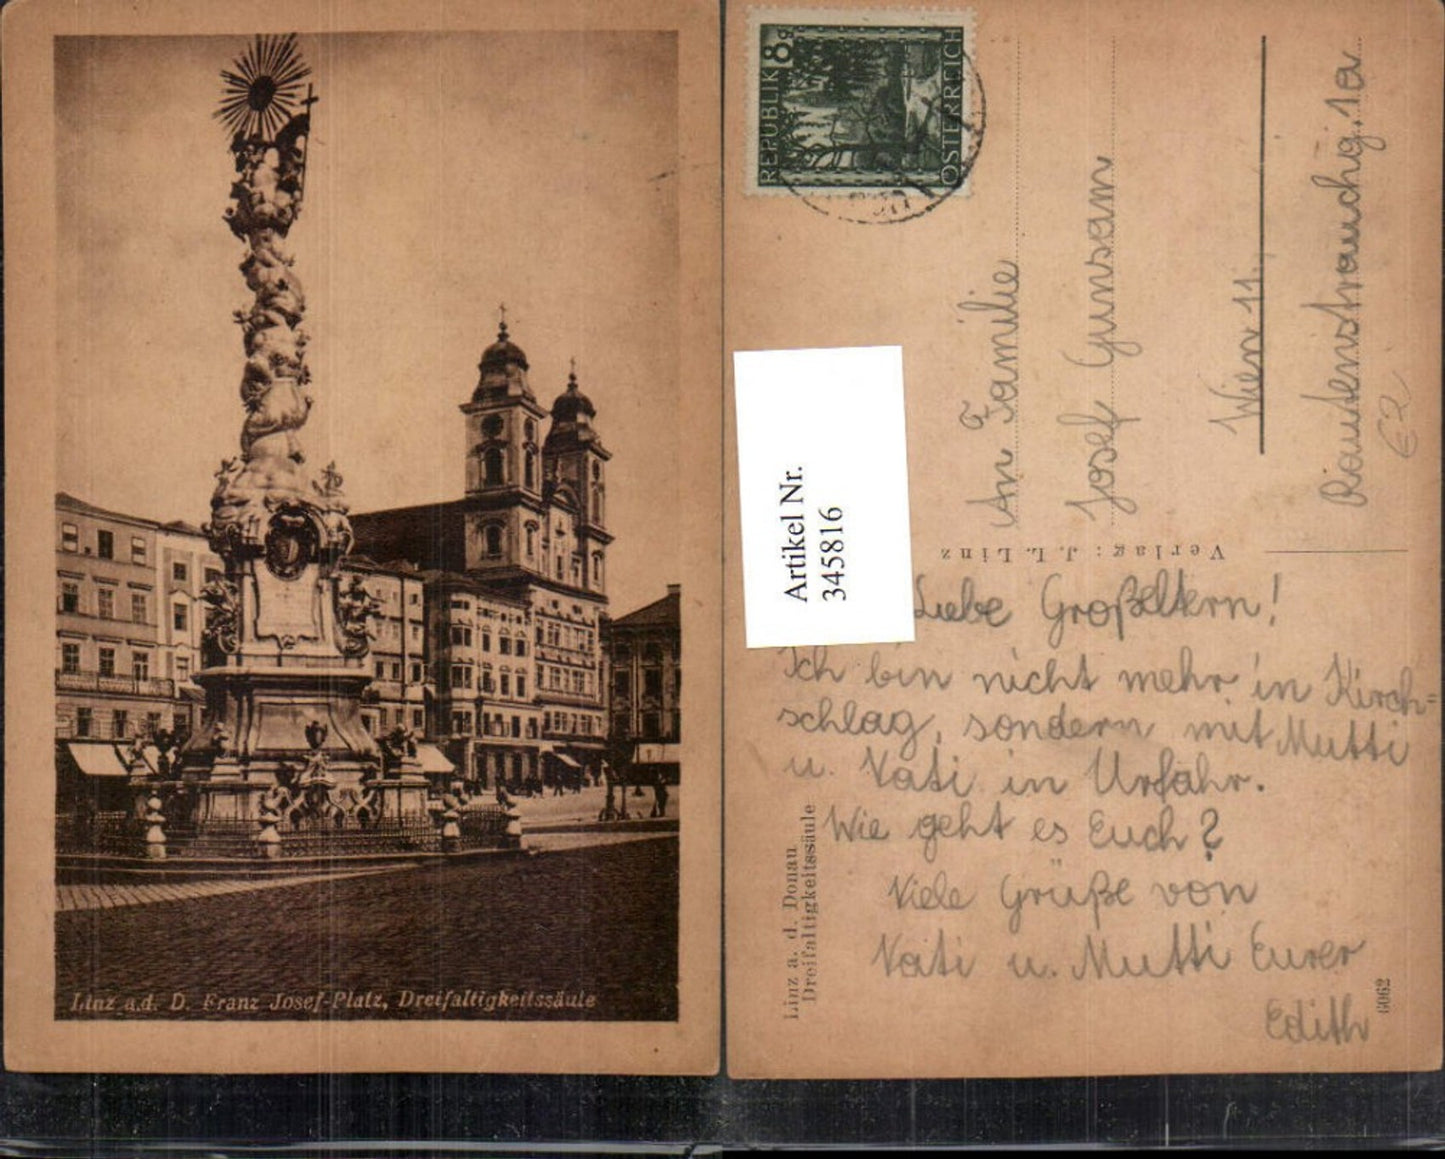 Linz a.d. D. Franz Josef-Platz, Dreifaltigkeitssäule
REPUBLIK 8g
ÖSTERREICH
Artikel Nr.
345816
An Familie
Josef Gunsam
Wien 11.
1a
€2
Verlag: J. L. Linz
Liebe Großeltern!
Ich bin nicht mehr in Kirch=
schlag, sondern mit Mutti
u. Vati in Urfahr.
Wie geht es Euch?
Viele Grüße von
Vati u. Mutti Eurer
Edith
Linz a. d. Donau
Dreifaltigkeitssäule
6062